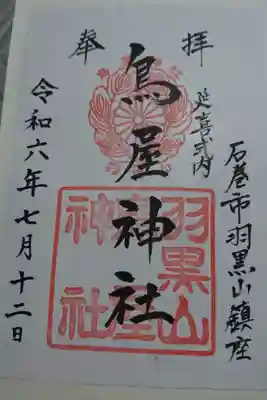 奉拝
石巻市羽黒山鎮座
延喜式内
鳥屋神社
令和六年七月十二日
羽黒山
神社